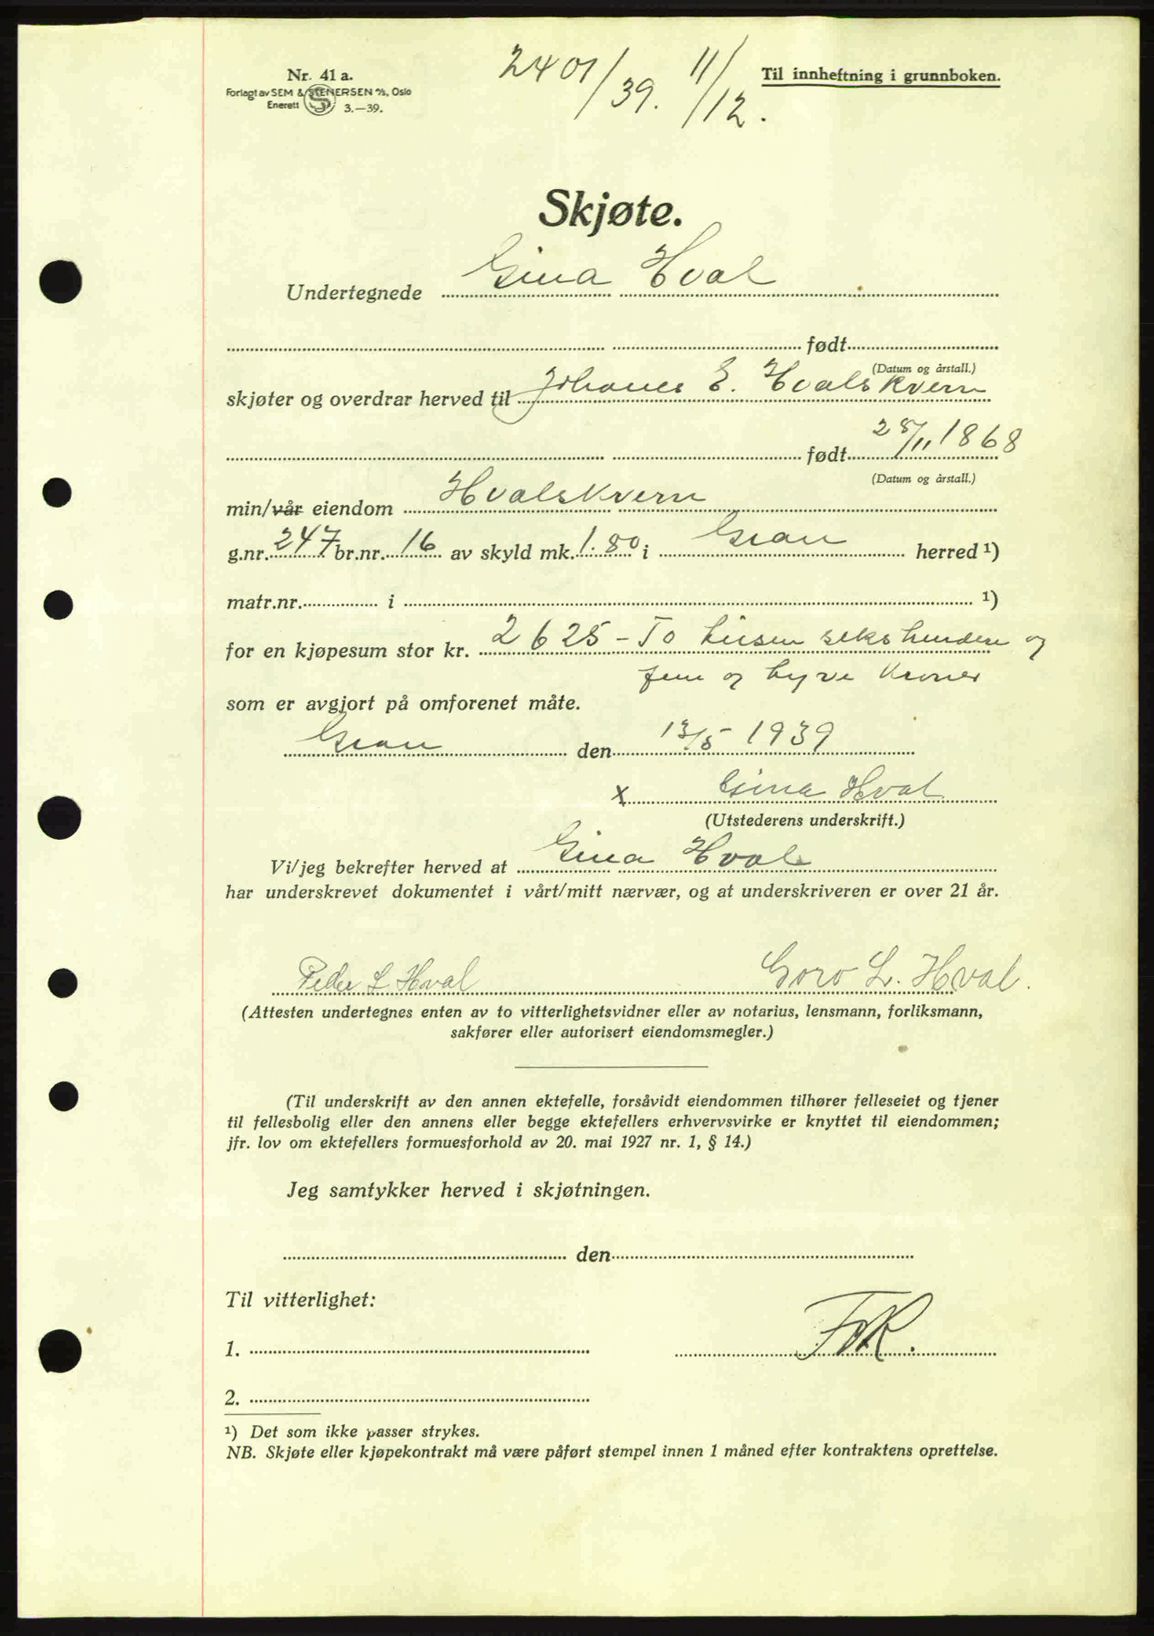 Nr. 41 a.
Forlagt av SEM & STENERSEN A/S, Oslo
Enerett 3.—39.
2401/39. 11/12.
Til innheftning i grunnboken.
Skjøte.
Undertegnede Gina Hval
født
(Datum og årstall.)
skjøter og overdrar herved til Johanes E. Hvalskvern
født 28/11 1868
(Datum og årstall.)
min/vår eiendom Hvalskvern
g.nr. 247 br.nr. 16 av skyld mk. 1.80 i Gran herred ¹)
matr.nr. i ¹)
for en kjøpesum stor kr. 2625 - To tusen seks hundere og
fem og tyve Kroner
som er avgjort på omforenet måte.
Gran den 13/5 1939
x Gina Hval
(Utstederens underskrift.)
Vi/jeg bekrefter herved at Gina Hval
har underskrevet dokumentet i vårt/mitt nærvær, og at underskriveren er over 21 år.
Peder L Hval Goro L. Hval.
(Attesten undertegnes enten av to vitterlighetsvidner eller av notarius, lensmann, forliksmann,
sakfører eller autorisert eiendomsmegler.)
(Til underskrift av den annen ektefelle, forsåvidt eiendommen tilhører felleseiet og tjener
til fellesbolig eller den annens eller begge ektefellers erhvervsvirke er knyttet til eiendommen;
jfr. lov om ektefellers formuesforhold av 20. mai 1927 nr. 1, § 14.)
Jeg samtykker herved i skjøtningen.
den
Til vitterlighet:
1.
2.
¹) Det som ikke passer strykes.
NB. Skjøte eller kjøpekontrakt må være påført stempel innen 1 måned efter kontraktens oprettelse.